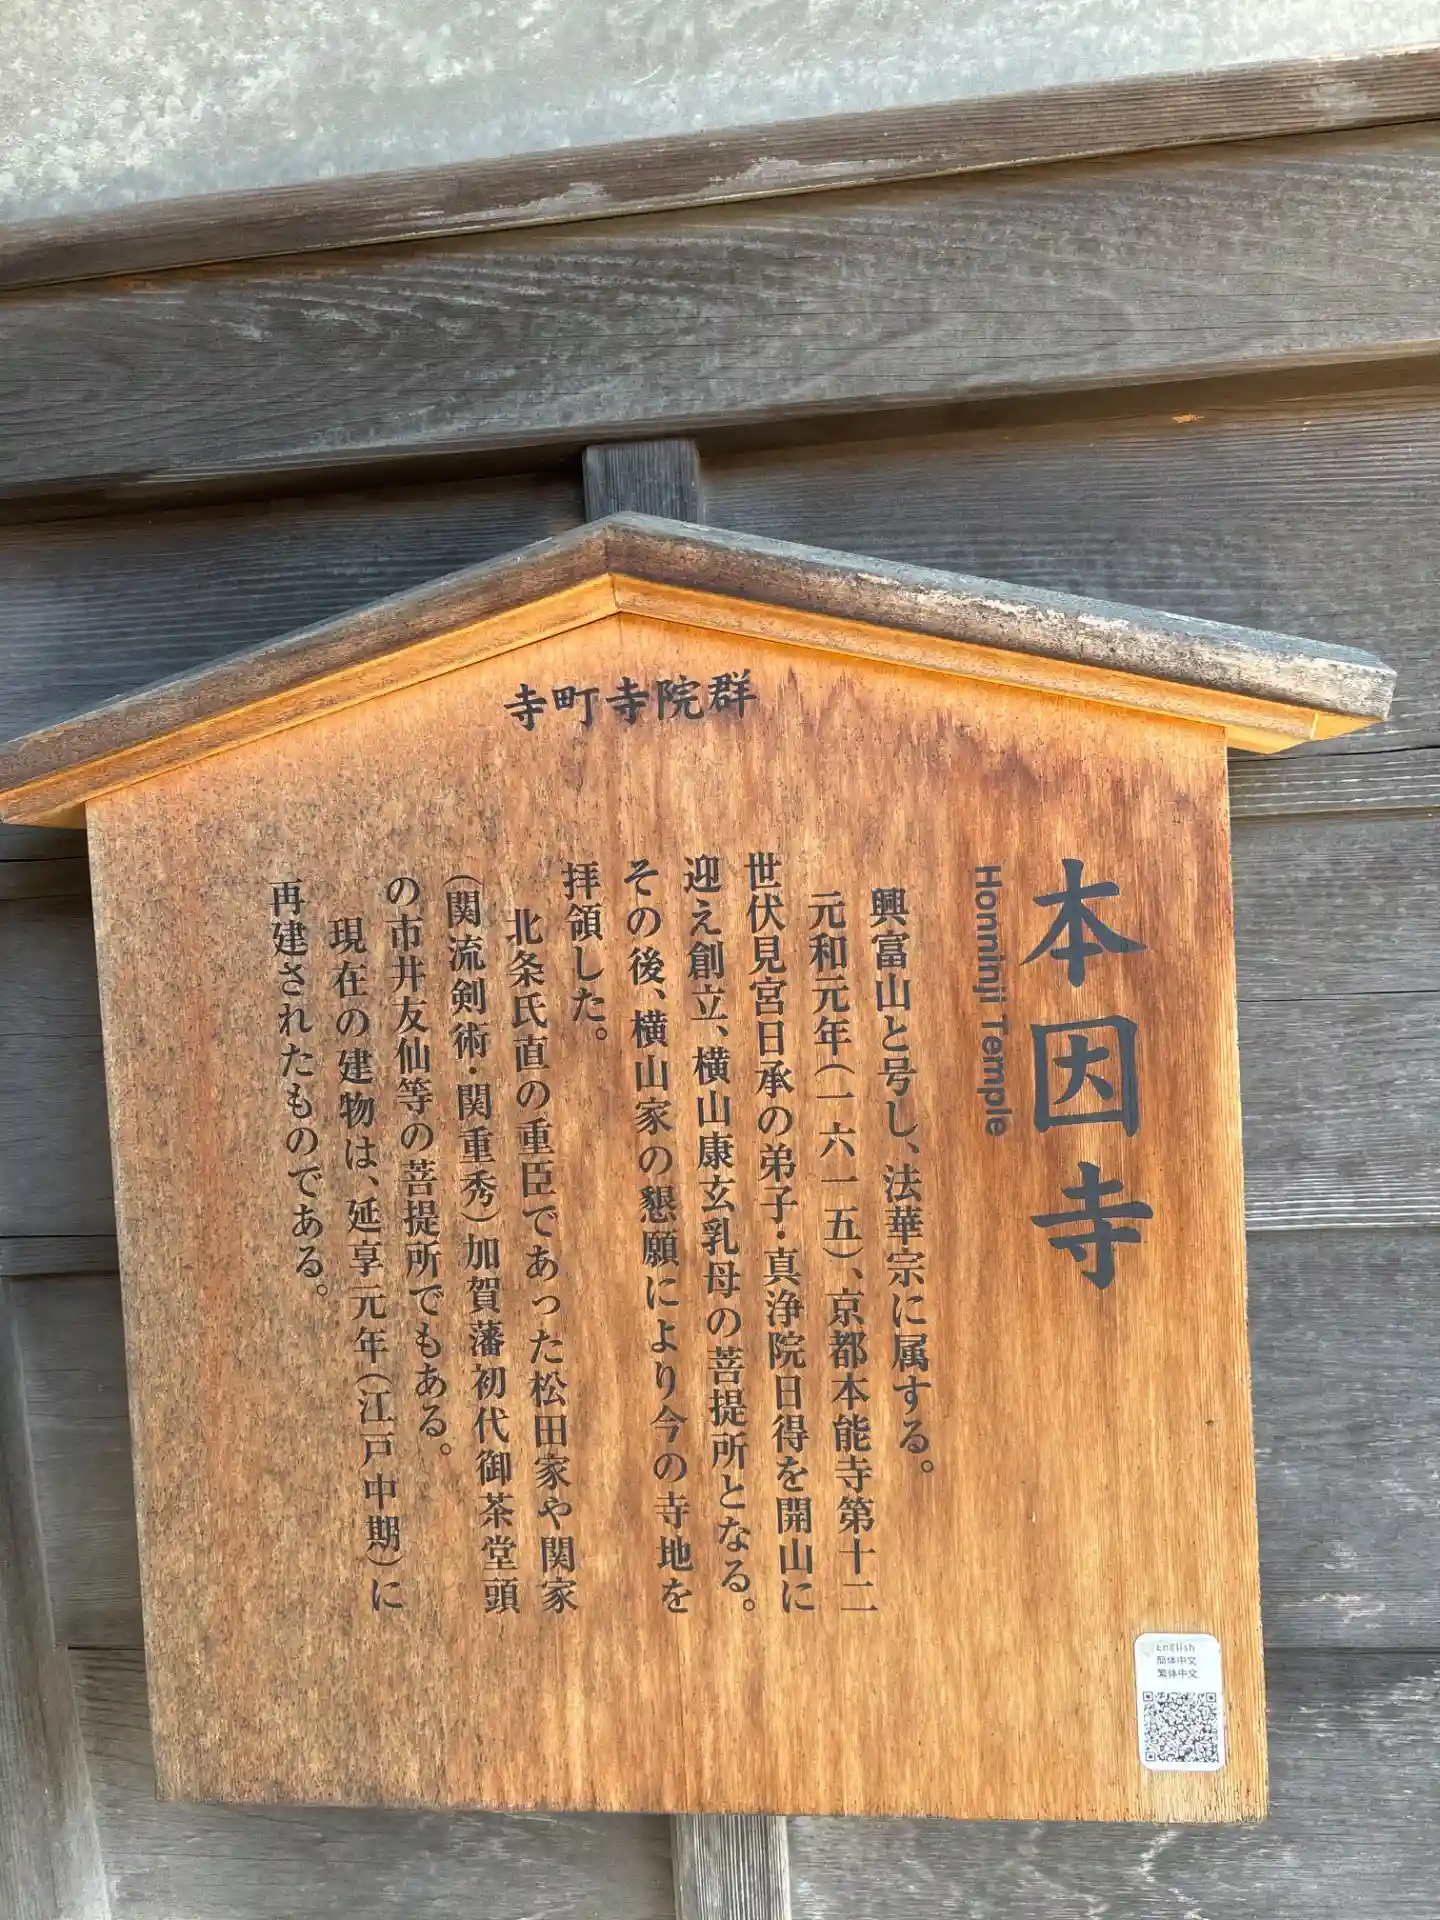 寺町寺院群
本因寺
Honninji Temple
興富山と号し、法華宗に属する。
元和元年(一六一五)、京都本能寺第十二
世伏見宮日承の弟子・真浄院日得を開山に
迎え創立、横山康玄乳母の菩提所となる。
その後、横山家の懇願により今の寺地を
拝領した。
北条氏直の重臣であった松田家や関家
(関流剣術・関重秀)加賀藩初代御茶堂頭
の市井友仙等の菩提所でもある。
現在の建物は、延享元年(江戸中期)に
再建されたものである。
English
簡体中文
繁体中文